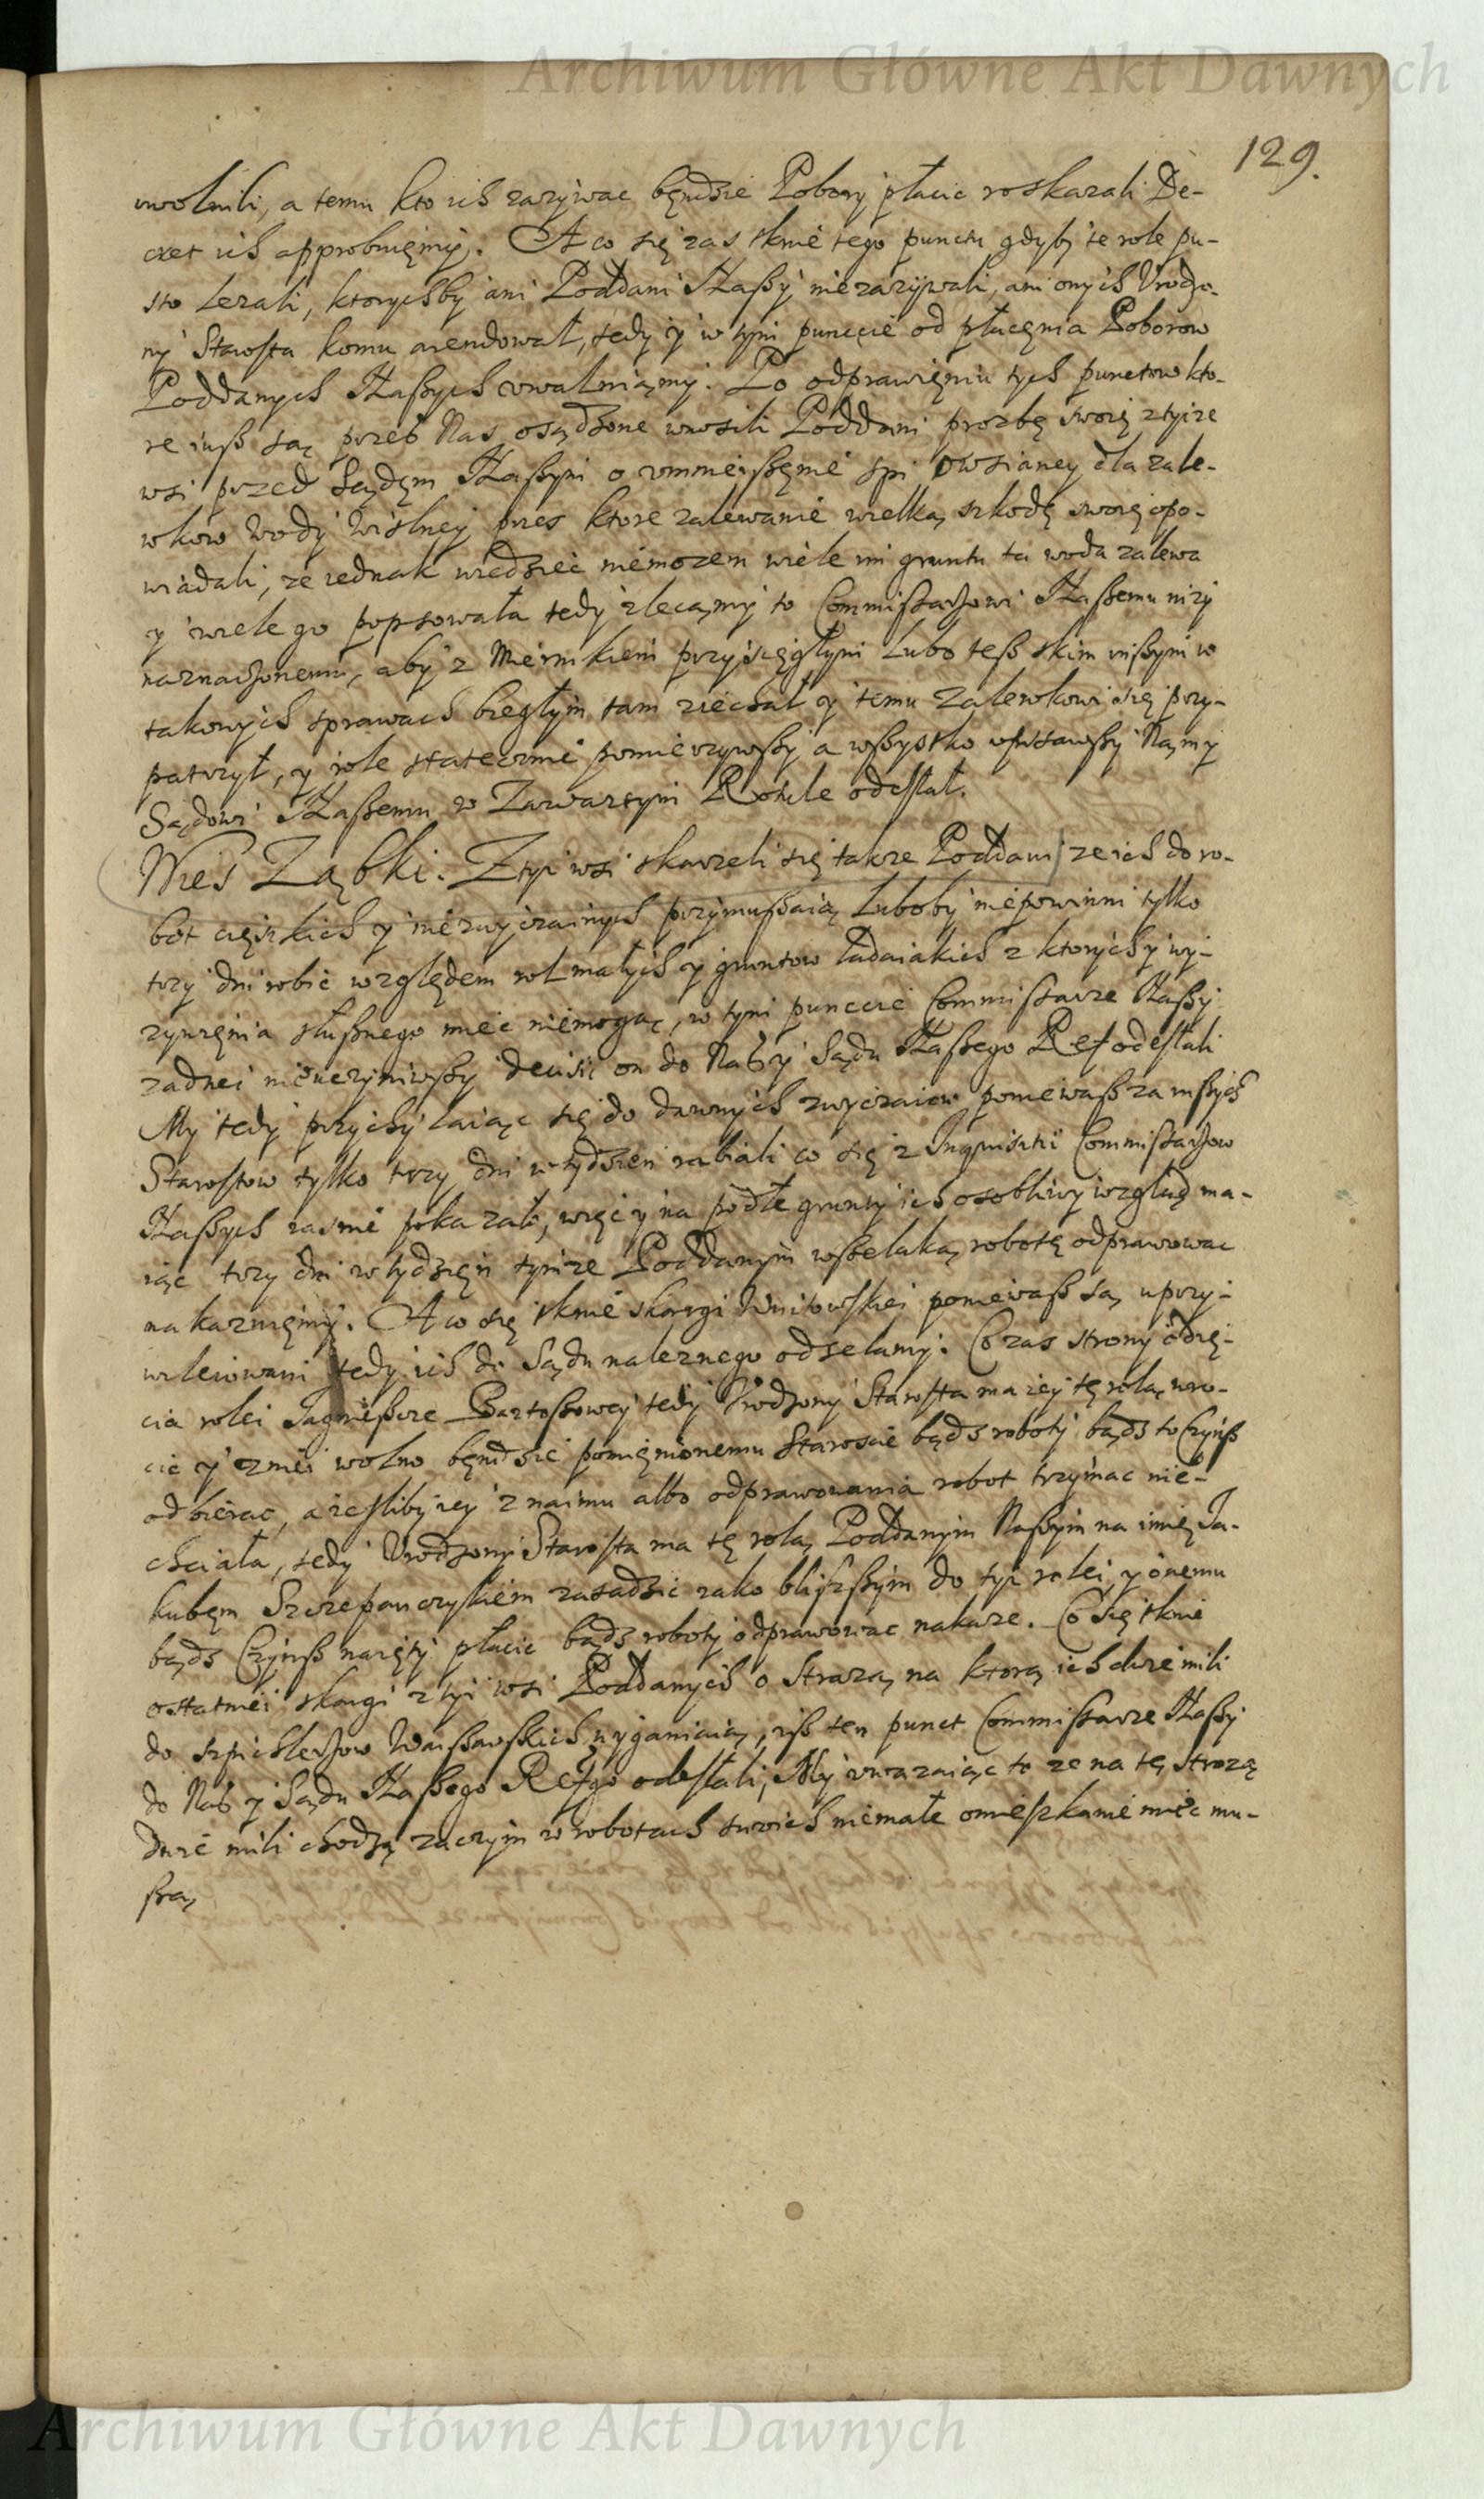 Archiwum Główne Akt Dawnych
129.
uwolnili, a temu kto ich zazywac będzie Pobory płacic roskazali De-
cret ich approbuięmy. A co się zas tknie tego punctu gdyby te role pu-
sto lezali, ktorychby ani Poddani Naszy niezazywali, ani onych Vrodzo-
ny Starosta komu arendował, tedy y w tym punccie od płacęnia Poborow
Poddanych Naszych vwalniamy. Po odprawięniu tych punctow kto-
re iusz są przes Nas osądzone wnosili Poddani prozbę swoię z tyize
wsi przed Sądęm Naszym o vmnieiszęnie spi owsianey dla zale-
wkow wody Wislney przes ktore zalewanie wielką szkodę swoię opo-
wiadali, ze iednak wiedziec niemozem wiele im gruntu ta woda zalewa
y wiele go popsowała tedy zlecamy to Commissarzowi Naszemu nizy
naznaczonemu, aby z Miernikiem przysięgłym lubo tesz s kim inszym w
takowych sprawach biegłym tam ziechał y temu Zalewkowi się przy-
patrzył, y role statecznie pomierzywszy a wszystko opisawszy Nam y
Sądowi Naszemu w Zawartym Rotule odesłał.
Wies Ząbki. Z tyi wsi skarzeli się takze Poddani ze ich do ro-
bot cięszkich y niezwyczainych przymuszaią luboby niepowinni tylko
trzy dni robic względem rol małych y gruntow ladaiakich z ktorych y wy-
zywięnia słusznego miec niemogąc, w tym punccie Commissarze Naszy
zadnei nieuczyniwszy decisii on do Nas y Sądu Naszego Ref odesłali
My tedy przychylaiąc się do dawnych zwyczaiow poniewasz za inszych
Starostow tylko trzy dni w tydzien rabiali co się z Inquisitii Commissarzow
Naszych iasnie pokazało, więc y na podłe grunty ich osobliwy wzgląd ma-
iąc trzy dni w tydzięn tymze Poddanym wszelaką robotę odprawowac
nakazuięmy. A co się tknie skargi Woitowskiei poniewasz są uprzy-
wileiowani tedy ich do Sądu naleznego odselamy. Co zas strony odię-
cia rolei Jagnieszce Bartoszowey tedy Vrodzony Starosta ma iey tę rolą wro-
cic y z niei wolno będzie pomięnionemu Staroscie bądz roboty bądz to Czynsz
odbierac, a iesliby iey z naimu albo odprawowania robot trzymac nie-
chciała, tedy Vrodzony Starosta ma tę rolą Poddanym Naszym na imię Ja-
kubęm Szczepanczykiem zasadzic iako bliszszym do tyi rolei y onemu
bądz Czynsz naięty płacic bądz roboty odprawowac nakaze. Co się tknie
ostatniei skargi z tyi wsi Poddanych o Strozą na ktorą ich dwie mili
do szpichlerzow Warszawskich wyganiaią, isz ten punct Commissarze Naszy
do Nas y Sądu Naszego Refgo odesłali, My vwazaiąc to ze na tę Strozą
dwie mili chodzą zaczym w robotach swoich niemałe omieszkanie miec mu-
szą
Archiwum Główne Akt Dawnych